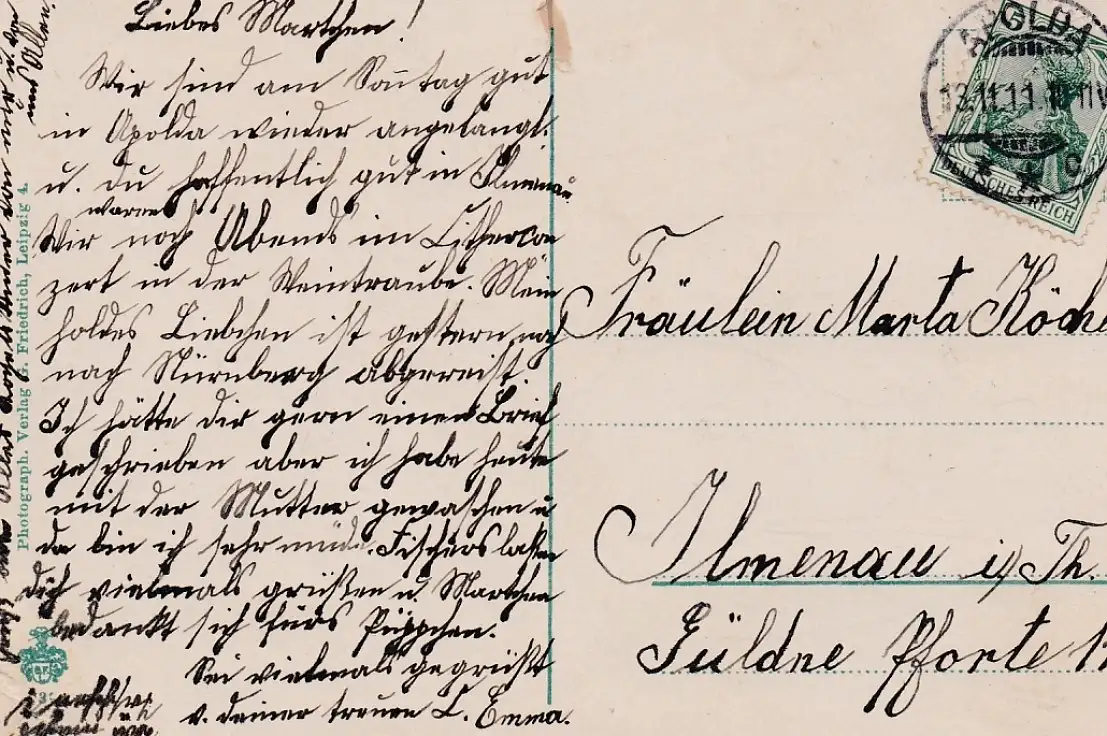 Liebes Martchen!
Wir sind am Sonntag gut
in Apolda wieder angelangt.
u. du hoffentlich gut in Ilmenau
waren
Wir noch Abends im Zithercon
zert in der Weintraube. Mein
holdes Liebchen ist gestern noch
nach Nürnberg abgereist.
Ich hätte dir gern einen Brief
geschrieben aber ich habe heute
mit der Mutter gewaschen u
da bin ich sehr müde. Fischers lassen
dich vielmals grüßen u. Martchen
bedankt sich fürs Püppchen.
Sei vielmals gegrüßt
v. deiner treuen L. Emma.
von mir u. den
und Allen.
Photograph. Verlag G. Friedrich, Leipzig 4.
APOLDA
13.11.11. 11-12V
DEUTSCHES REICH
Fräulein Marta Köche
Ilmenau i/Th.
Güldne Pforte 1